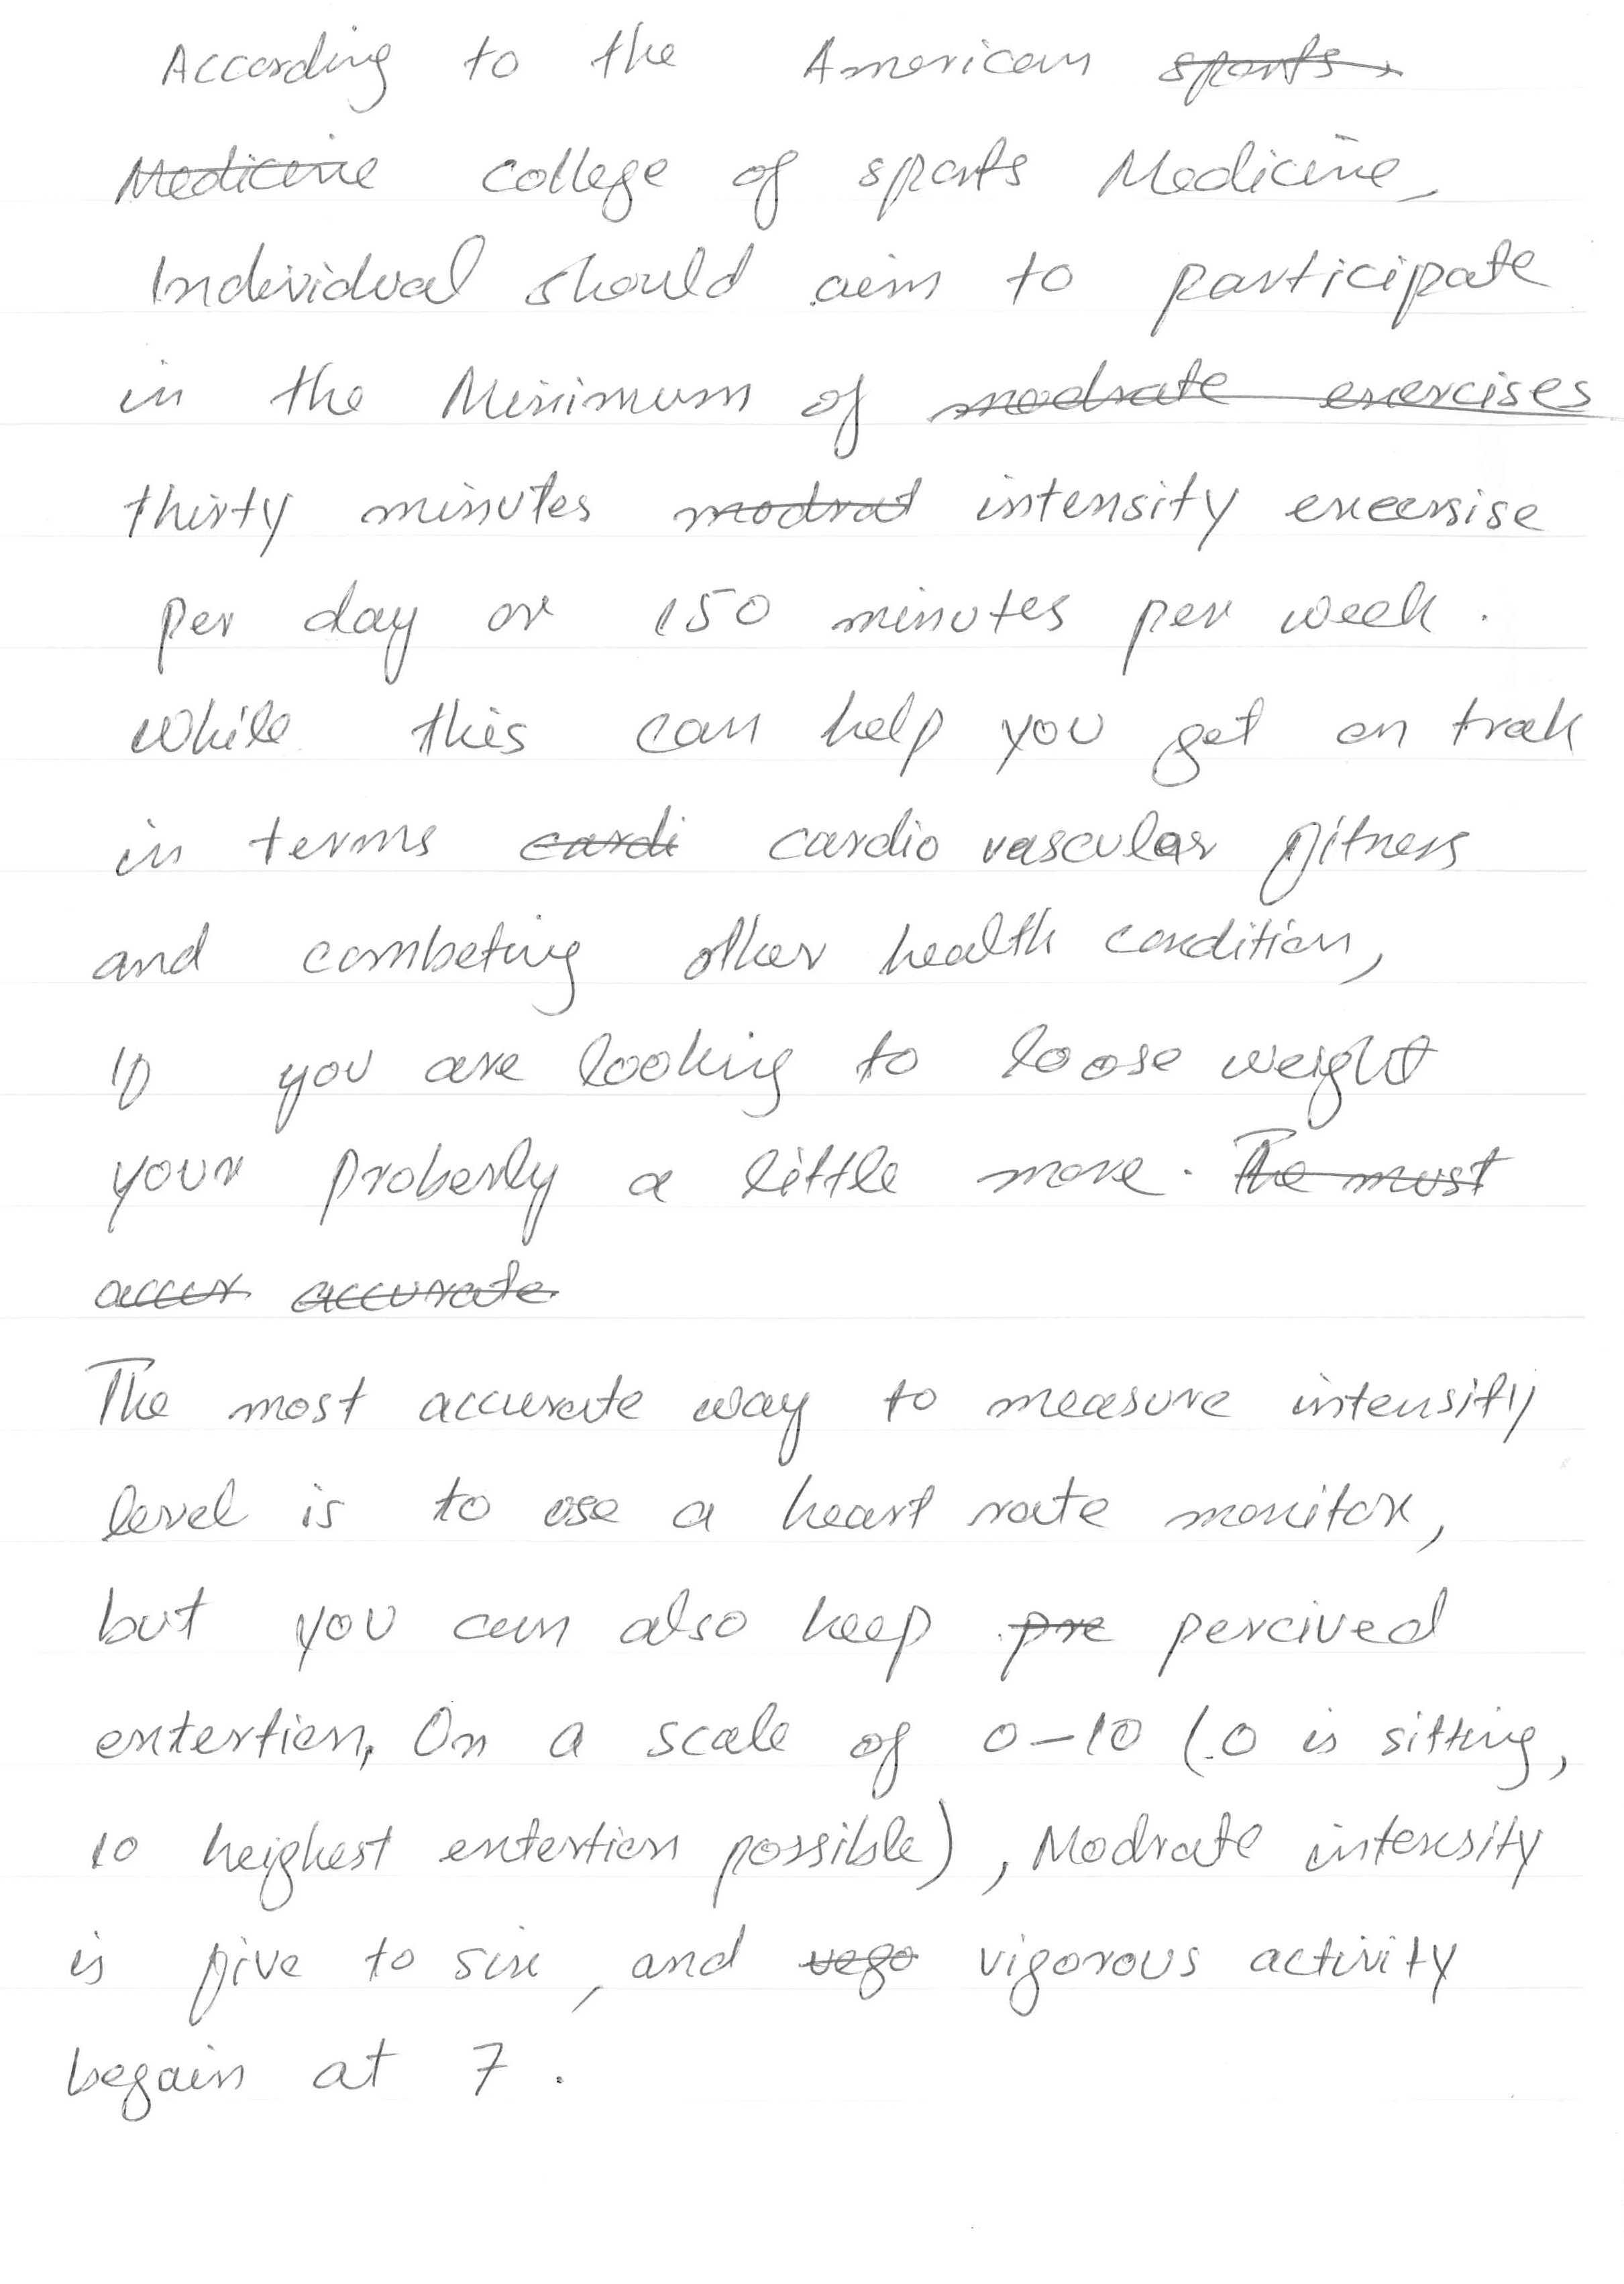 According to the American ~~sports~~
~~Medicine~~ college of sports Medicine,
Individual should aim to participate
in the Minimum of ~~modrate exercises~~
thirty minutes ~~modrat~~ intensity excersise
per day or 150 minutes per week.
while this can help you get on trak
in terms ~~cardi~~ cardio vascular fitness
and combeting other health condition,
If you are looking to loose weight
your proberly a little more. ~~The must~~
~~accur~~ ~~accurate~~
The most accurate way to measure intensity
level is to use a heart rate monitor,
but you can also keep ~~pre~~ percived
extertion, On a scale of 0-10 (0 is sitting,
10 heighest extertion possible), Modrate intensity
is five to six, and ~~vego~~ vigorous activity
begain at 7.